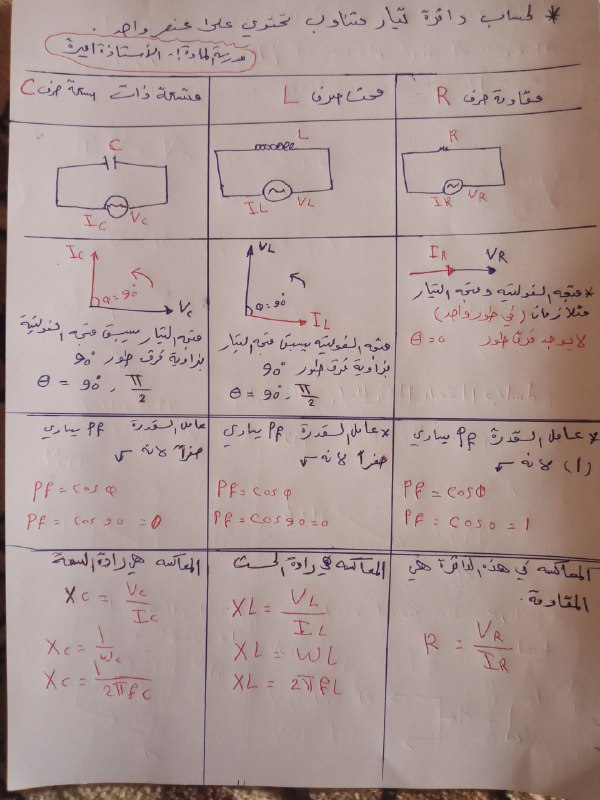 * لحساب دائرة تيار متناوب تحتوي على عنصر واحد.
مدرسة المادة :- الأستاذة اميرة
مقاومة صرف R
محث صرف L
متسعة ذات سعة صرف C
R
I_R V_R
L
I_L V_L
C
I_C V_C
I_R V_R
* متجه الفولتية ومتجه التيار
متلازمان (في طور واحد)
لا يوجد فرق طور θ = 0
V_L
Φ = 90°
I_L
متجه الفولتية يسبق متجه التيار
بزاوية فرق طور 90°
θ = 90° , π/2
I_C
Φ = 90°
V_C
متجه التيار يسبق متجه الفولتية
بزاوية فرق طور 90°
θ = 90° , π/2
* عامل القدرة Pf يساوي
(1) لانه
Pf = cosΦ
Pf = cos0 = 1
* عامل القدرة Pf يساوي
صفراً لانه
Pf = cosΦ
Pf = cos90 = 0
عامل القدرة Pf يساوي
صفراً لانه
Pf = cosΦ
Pf = cos90 = 0
المعاكسة في هذه الدائرة هي
المقاومة.
R = V_R / I_R
المعاكسة رادة الحث
XL = V_L / I_L
XL = ωL
XL = 2πfL
المعاكسة هي رادة السعة
Xc = Vc / Ic
Xc = 1 / ωc
Xc = 1 / 2πfc